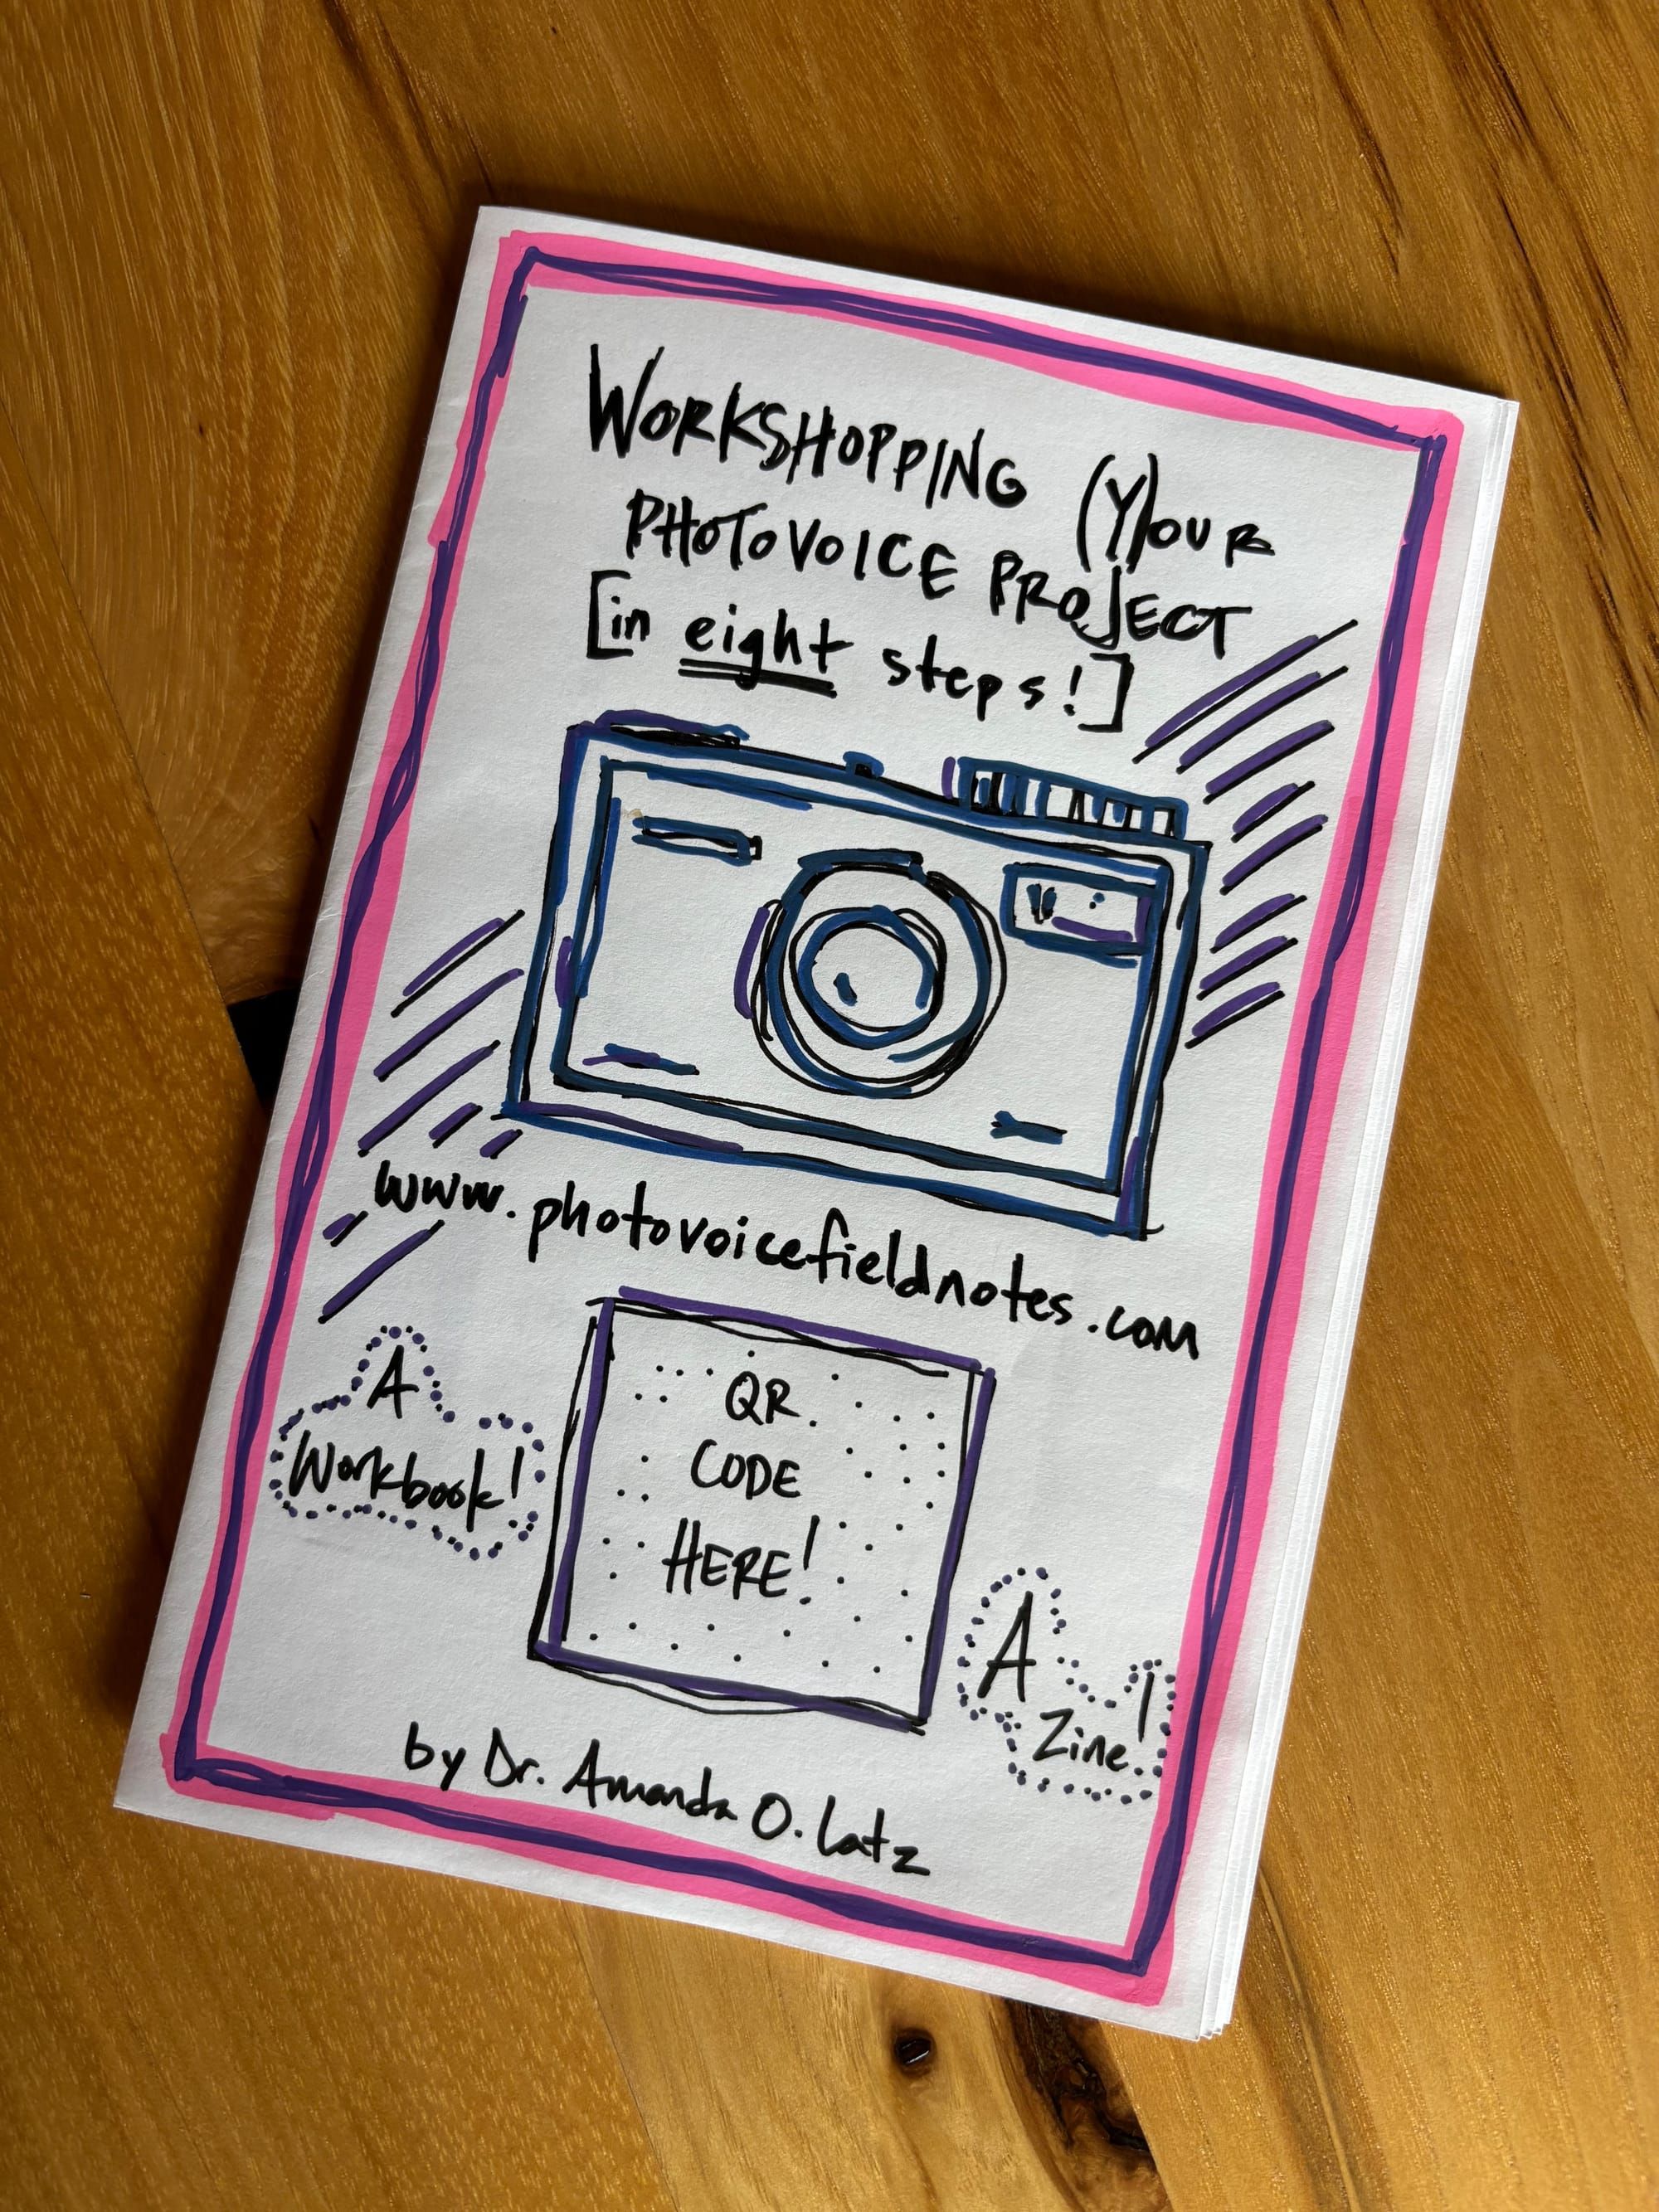 WORKSHOPPING (Y)OUR
PHOTOVOICE PROJECT
[in eight steps!]
www.photovoicefieldnotes.com
A
Workbook!
QR
CODE
HERE!
A
Zine!
by Dr. Amanda O. Latz